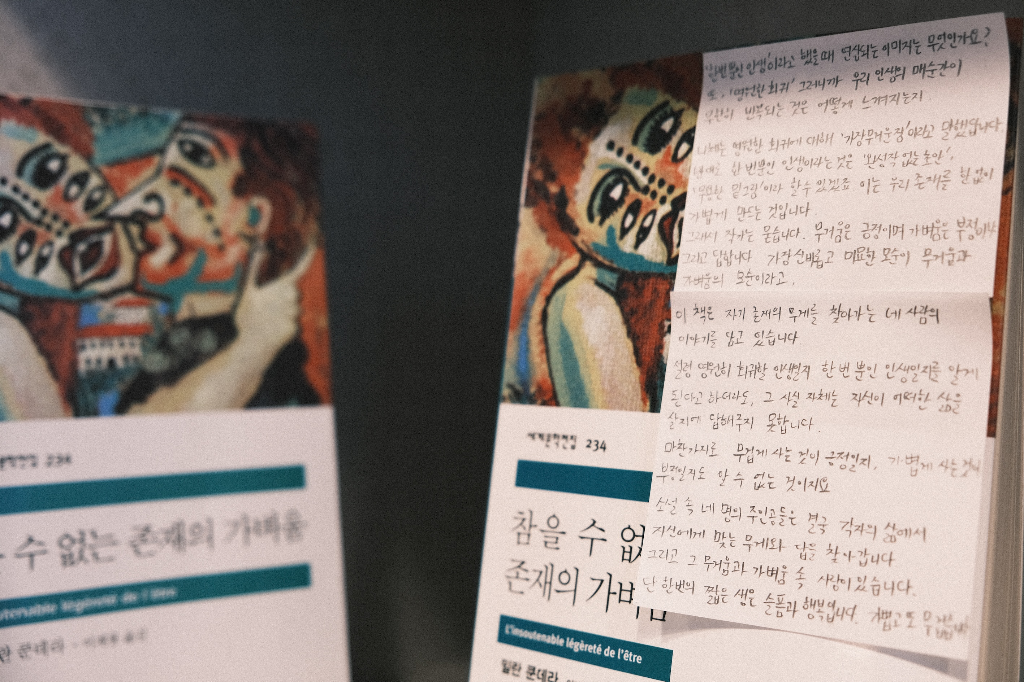 세계문학전집 234
수 없는 존재의 가벼움
insoutenable légèreté de l'être
란 쿤데라 · 이재룡 옮김
'한번뿐인 인생'이라고 했을때 연상되는 이미지는 무엇인가요?
또, '영원한 회귀' 그러니까 우리 인생의 매순간이
무한히 반복되는 것은 어떻게 느껴지는지
니체는 영원한 회귀에 대해 '가장무거운 짐'이라고 말했답니다.
한 번뿐인 인생이라는 것은 '완성작 없는 초안',
'무용한 밑그림'이라 할 수 있겠죠 이는 우리 존재를 한없이
가볍게 만드는 것입니다.
그래서 작가는 묻습니다. 무거움은 긍정이며 가벼움은 부정이냐
그리고 답합니다 가장 신비롭고 미묘한 모순이 무거움과
가벼움의 모순이라고.
이 책은 자기 존재의 무게를 찾아가는 네 사람의
이야기를 담고 있습니다
설령 영원히 회귀할 인생일지 한 번 뿐인 인생일지를 알게
된다고 하더라도, 그 사실 자체는 자신이 어떠한 삶을
살지에 답해주지 못합니다.
마찬가지로 무겁게 사는 것이 긍정일지, 가볍게 사는것이
부정일지도 알 수 없는 것이지요
소설 속 네 명의 주인공들은 결국 각자의 삶에서
자신에게 맞는 무게와 답을 찾아갑니다
그리고 그 무거움과 가벼움 속 사랑이 있습니다.
단 한번의 짧은 생은 슬픔과 행복입니다. 가볍고 또 무겁습니다
세계문학전집 234
참을 수 없
존재의 가벼움
L'insoutenable légèreté de l'être
밀란 쿤데라